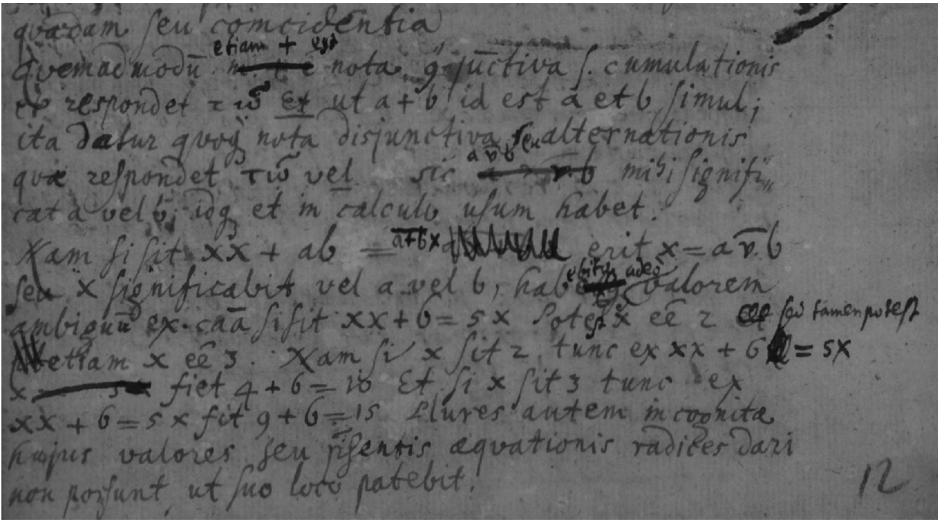 quadam seu coincidentia
etiam + est
Quemadmodū nota 9juctiva s. cumulationis
respondet τῷ Et ut a + b id est a et b simul;
ita datur quoq nota disjunctiva seu alternationis
quæ respondet τῷ vel sic a v̄ b mihi signifi
cat a vel b, idq et in calculo usum habet.
Nam si sit xx + ab = a+b x erit x = a v̄ b
seu x significabit vel a vel b, habebitq adeo valorem
ambiguū ex. caā si sit xx + 6 = 5x Potest x eē 2 sed tamen potest
etiam x eē 3. Nam si x sit 2 tunc ex xx + 6 = 5x
fiet 4 + 6 = 10 Et si x sit 3 tunc ex
xx + 6 = 5x fit 9 + 6 = 15 Plures autem incognitæ
hujus valores seu æquationis radices dari
non possunt, ut suo loco patebit.
12